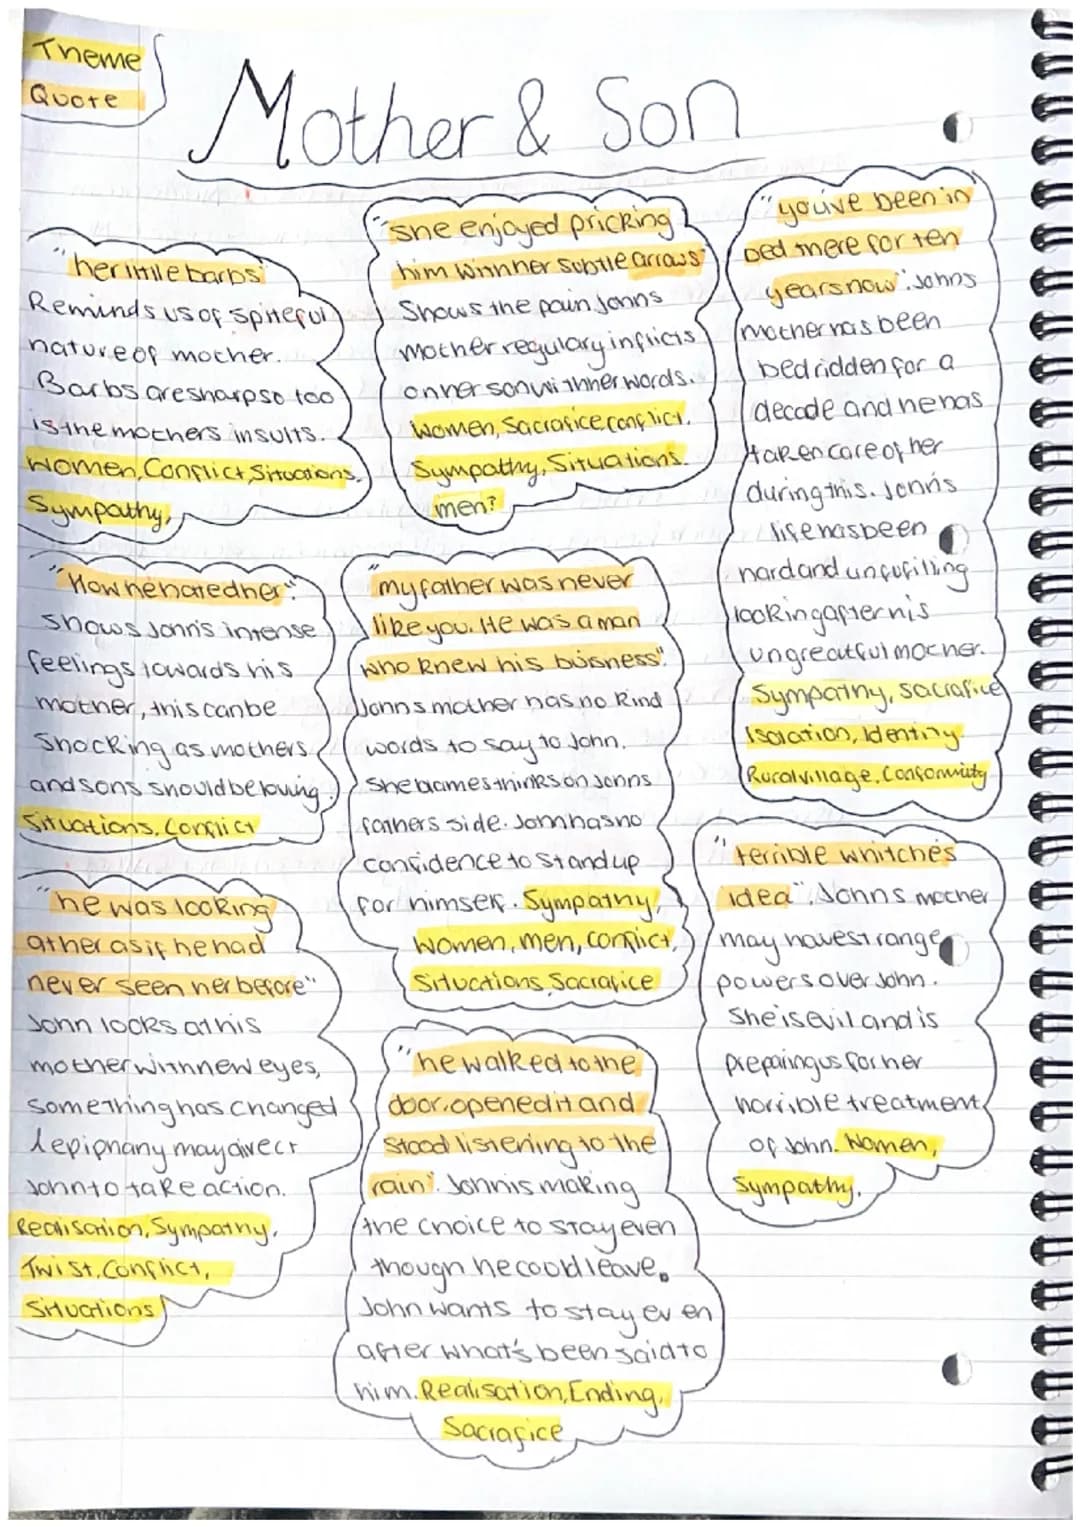 Theme
Quote
Mother & Son
"her little barbs"
Reminds us of spiteful
nature of mother.
Barbs are sharp so too
is the mothers insults.
Women, Conflict, Situations,
Sympathy,
"she enjoyed pricking
him with her subtle arrows"
Shows the pain Johns
mother regulary inflicts
on her son with her words.
Women, Sacrafice, conflict,
Sympathy, Situations.
men?
"you've been in
bed there for ten
years now". Johns
mother has been
bed ridden for a
decade and he has
taken care of her
during this. John's
life has been
hard and unfufilling
looking after his
ungreatful mother.
Sympathy, sacrafice
Isolation, Identity.
Rural village, Conformity
"How he hated her".
Shows John's intense
feelings towards his
mother, this can be
shocking as mothers
and sons should be loving.
Situations, Conflict
"my father was never
like you. He was a man
who knew his buisness".
Johns mother has no kind
words to say to John.
She blames thinks on Johns
fathers side. John has no
confidence to stand up
for himself. Sympathy,
Women, men, conflict,
Situations, Sacrafice
"terrible whitch's
idea". Johns mother
may have strange
powers over John.
She is evil and is
preparing us for her
horrible treatment
of John. Women,
Sympathy.
"he was looking
at her as if he had
never seen her before"
John looks at his
mother with new eyes,
something has changed
& epiphany may direct
John to take action.
Realisation, Sympathy,
Twist, Conflict,
Situations
"he walked to the
door, opened it and
stood listening to the
rain". John is making
the choice to stay even
though he could leave.
John wants to stay even
after what's been said to
him. Realisation, Ending,
Sacrafice